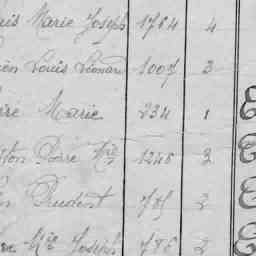 uis Marie Joseph 1764 4
ien Louis Léonard 1007 3
ire Marie 234 1
ston Pierre Mie 1246 2
Prudent 785 2
re Mie Joseph 786 2